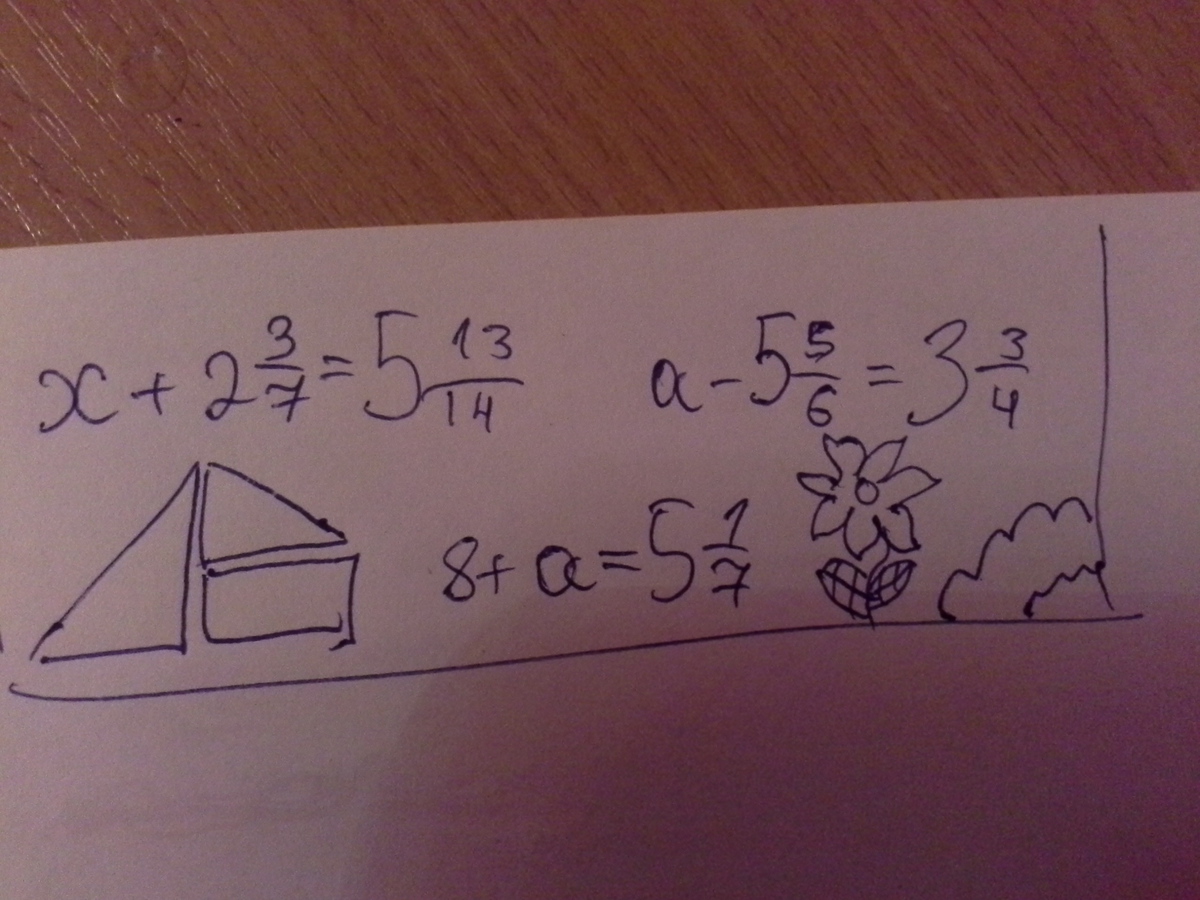 x + 2 3/7 = 5 13/14
a - 5 5/6 = 3 3/4
8 + a = 5 1/7